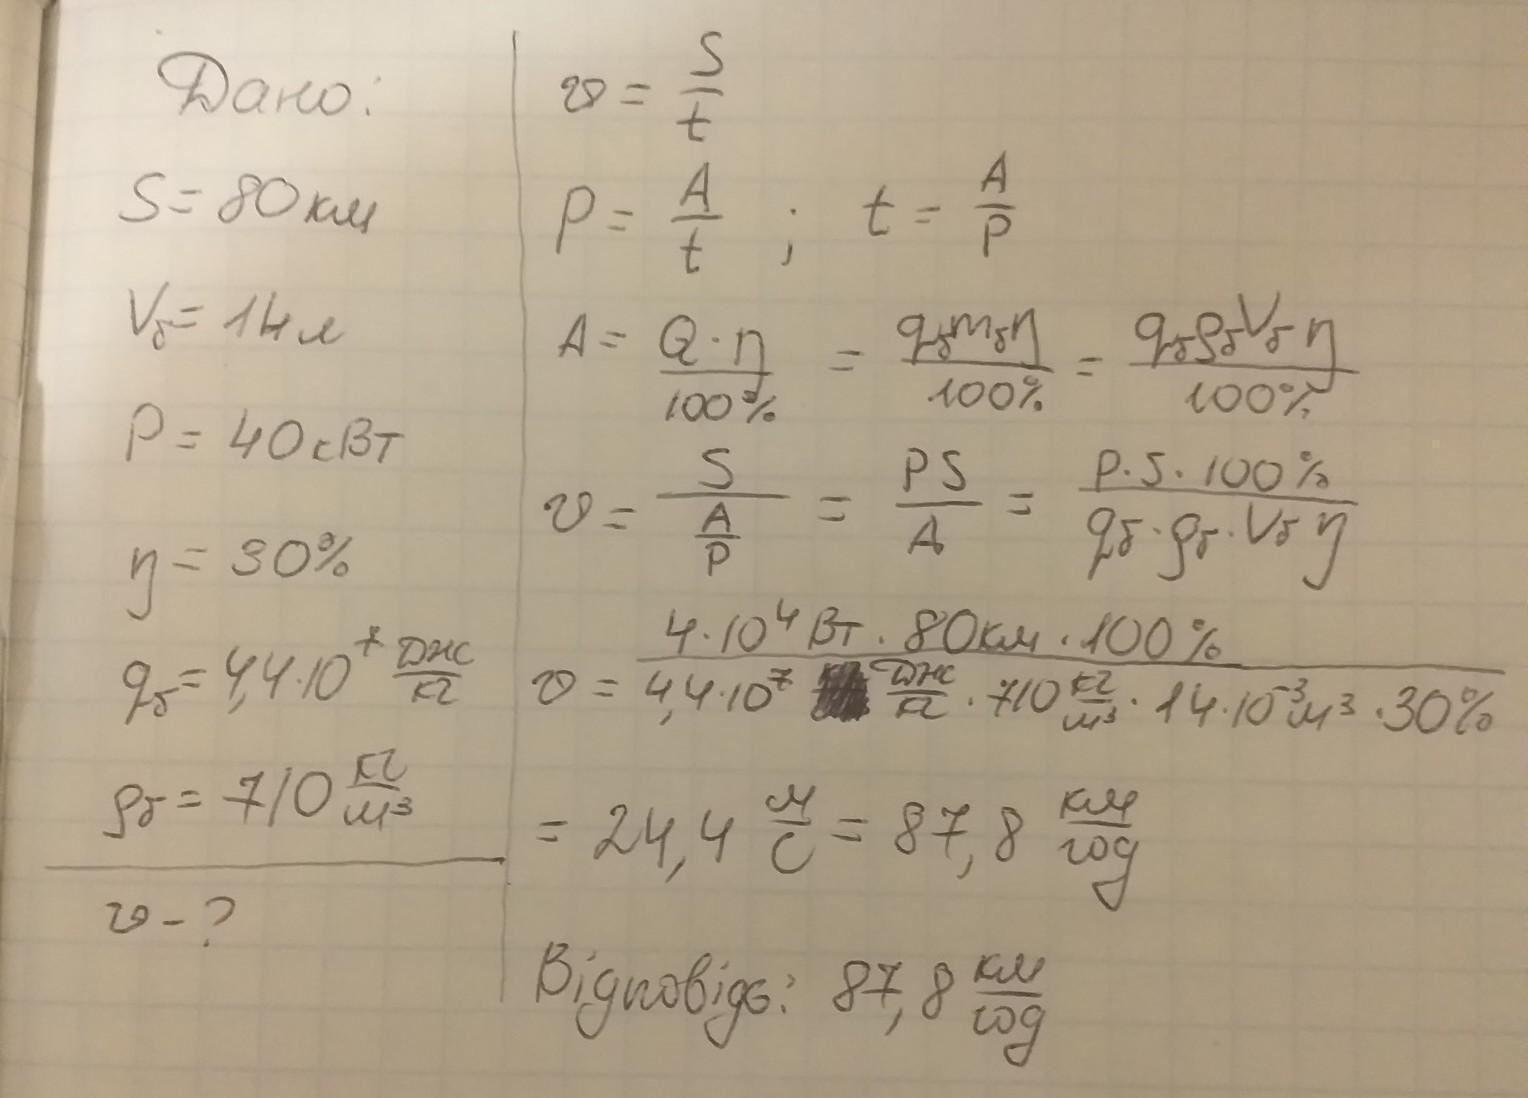 Дано:
S = 80 км
Vб = 14 л
P = 40 кВт
η = 30%
qб = 4,4·10⁷ Дж/кг
ρб = 710 кг/м³
v - ?
v = S/t
P = A/t ; t = A/P
A = Q·η/100% = qбmбη/100% = qбρбVбη/100%
v = S/(A/P) = PS/A = P·S·100%/(qб·ρб·Vб η)
v = 4·10⁴ Вт · 80 км · 100% / (4,4·10⁷ Дж/кг · 710 кг/м³ · 14·10⁻³ м³ · 30%)
= 24,4 м/с = 87,8 км/год
Відповідь: 87,8 км/год